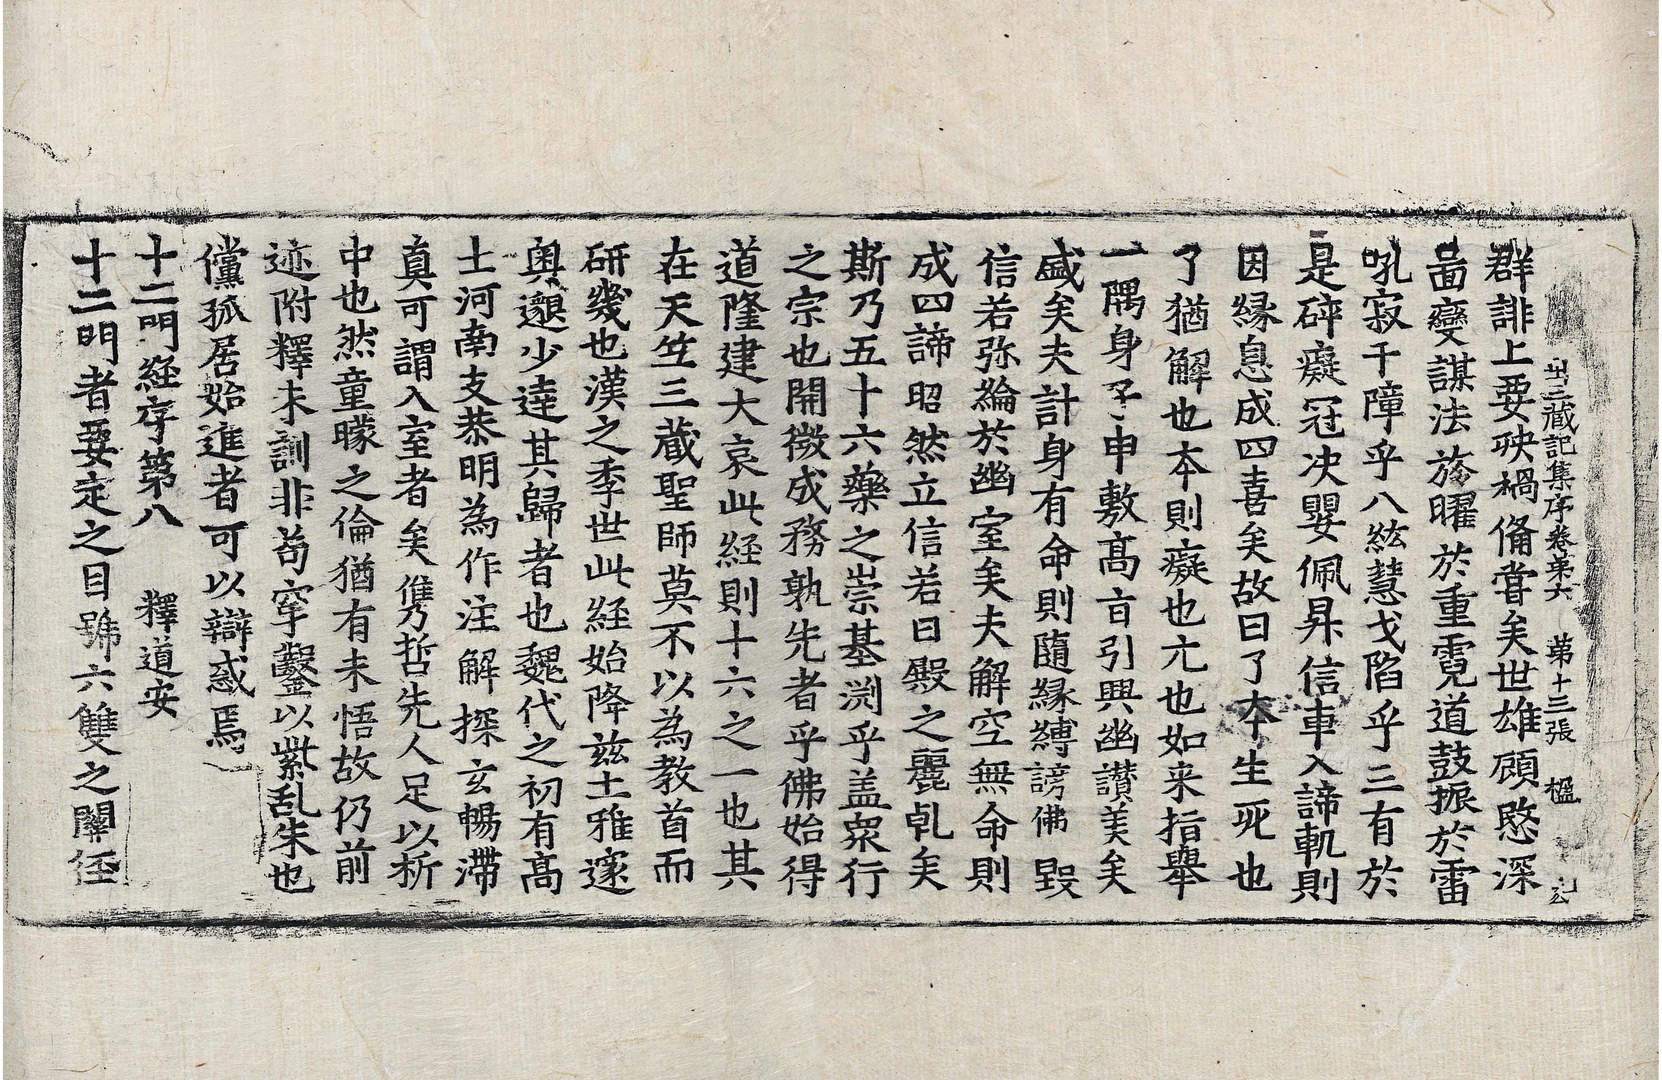 出三藏記集序卷第六　第十三張　楹
群誹上要殃禍俻甞矣世雄顧愍深
啚變謀法旍曜於重霓道鼓振於雷
吼寂千障乎八紘慧戈陷乎三有於
是碎癡冠决嬰佩昇信車入諦軌則
因縁息成四喜矣故曰了夲生死也
了猶解也夲則癡也亢也如来指舉
一隅身子申敷髙㫖引興幽讃美矣
盛矣夫計身有命則隨縁縛謗佛毀
信若弥綸於幽室矣夫解空無命則
成四諦昭然立信若日殿之麗乹矣
斯乃五十六藥之崇基淵乎盖衆行
之宗也開微成務孰先者乎佛始得
道隆建大哀此経則十六之一也其
在天竺三蔵聖師莫不以為教首而
研幾也漢之季世此経始降兹土雅邃
奧邈少達其歸者也魏代之初有髙
士河南支恭明為作注解探玄暢滯
真可謂入室者矣儁哲先人足以析
中也然童曚之倫猶有未悟故仍前
迹附釋未訓非苟穿鑿以紫乱朱也
儻孤居始進者可以辯惑焉
十二門経序第八　釋道安
十二門者要定之目號六雙之關徑